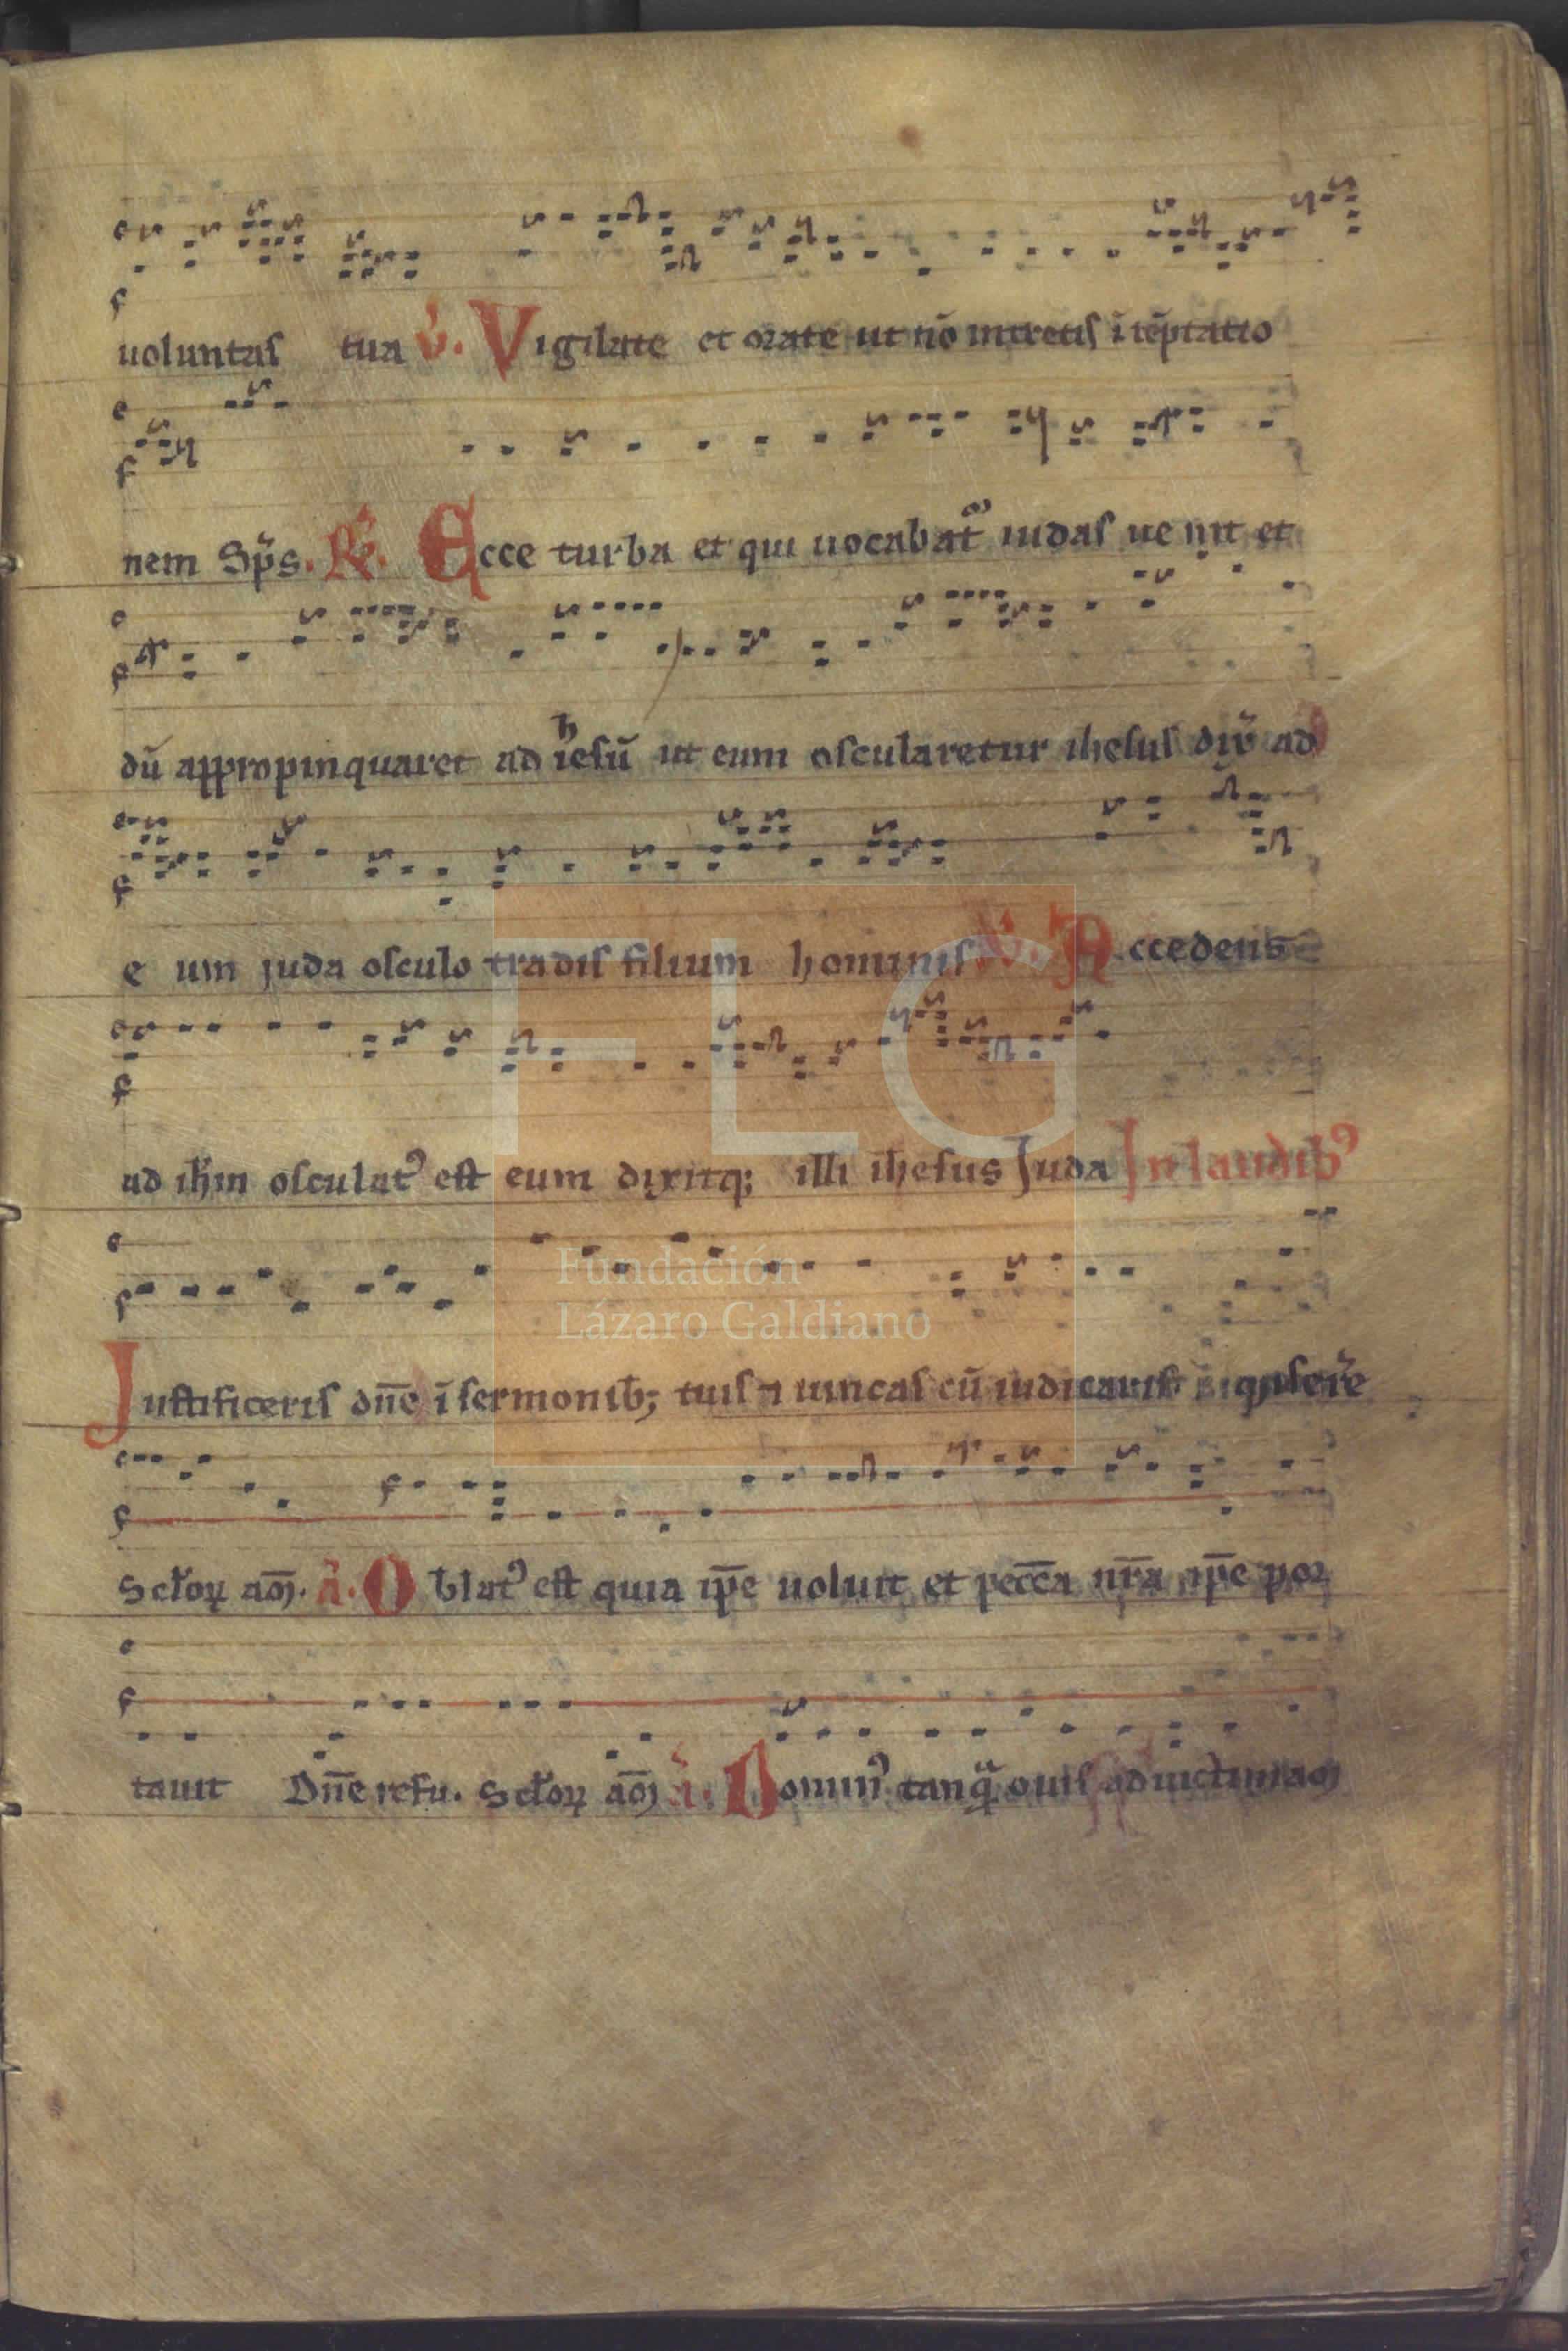 uoluntas tua v̉. Vigilate et orate ut nō intretis ī tēptatio
nem Sp̄s. R̃e. Ecce turba et qui uocabat᷒ iudas ue nit et
dū appropinquaret ad ihesū ut eum oscularetur ihesus dix̄ ad
e um juda osculo tradis filium hominis v̉. Accedens
ad ihm̄ osculat᷒ est eum dixitq; illi ihesus Juda In laudib᷒
FLG
Fundación
Lázaro Galdiano
Justificeris dn̄e ī sermonib; tuis ⁊ uincas cū iudicaris
Sctōꝝ. a᷒. Oblat᷒ est quia ip̄e uoluit et pecc̄a nr̄a ip̄e por
tauit Dn̄e refu. Sctōꝝ a᷒. Domin᷒ tanq̄ ouis ad uictimam